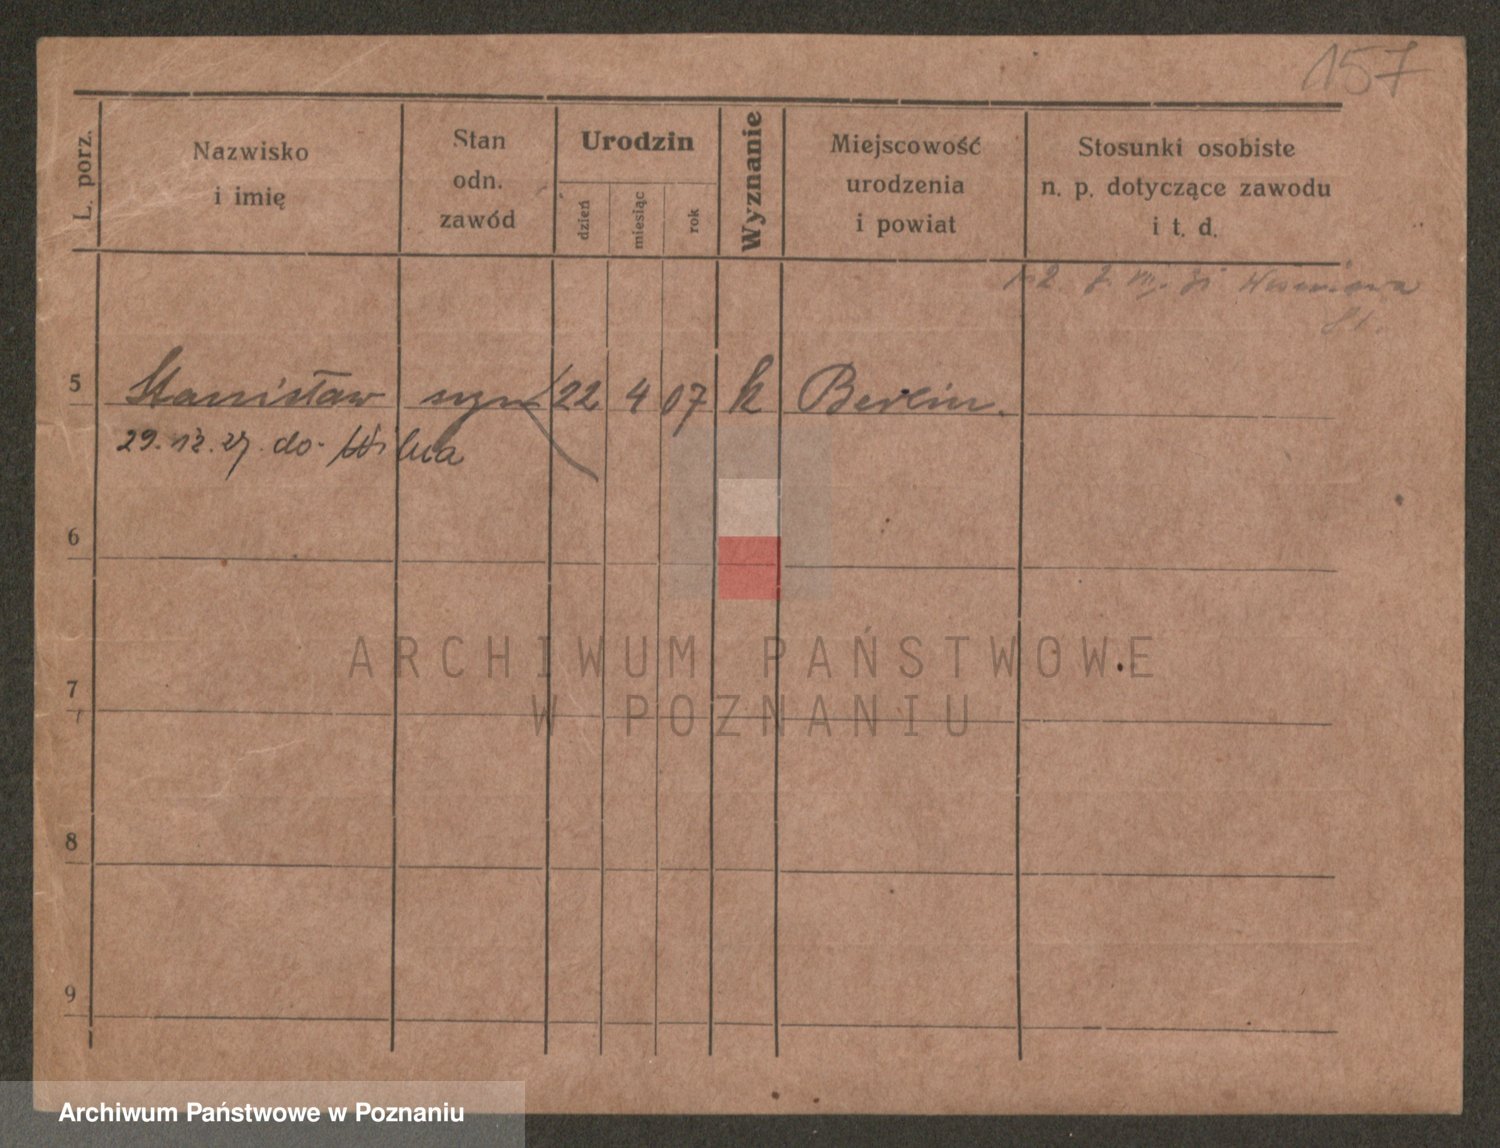 157
L. porz.
Nazwisko
i imię
Stan
odn.
zawód
Urodzin
dzień
miesiąc
rok
Wyznanie
Miejscowość
urodzenia
i powiat
Stosunki osobiste
n. p. dotyczące zawodu
i t. d.
5 Stanisław syn 22 4 07 k Berlin.
29. 12. 27. do Wilna
6
7
8
9
ARCHIWUM PAŃSTWOWE
W POZNANIU
Archiwum Państwowe w Poznaniu